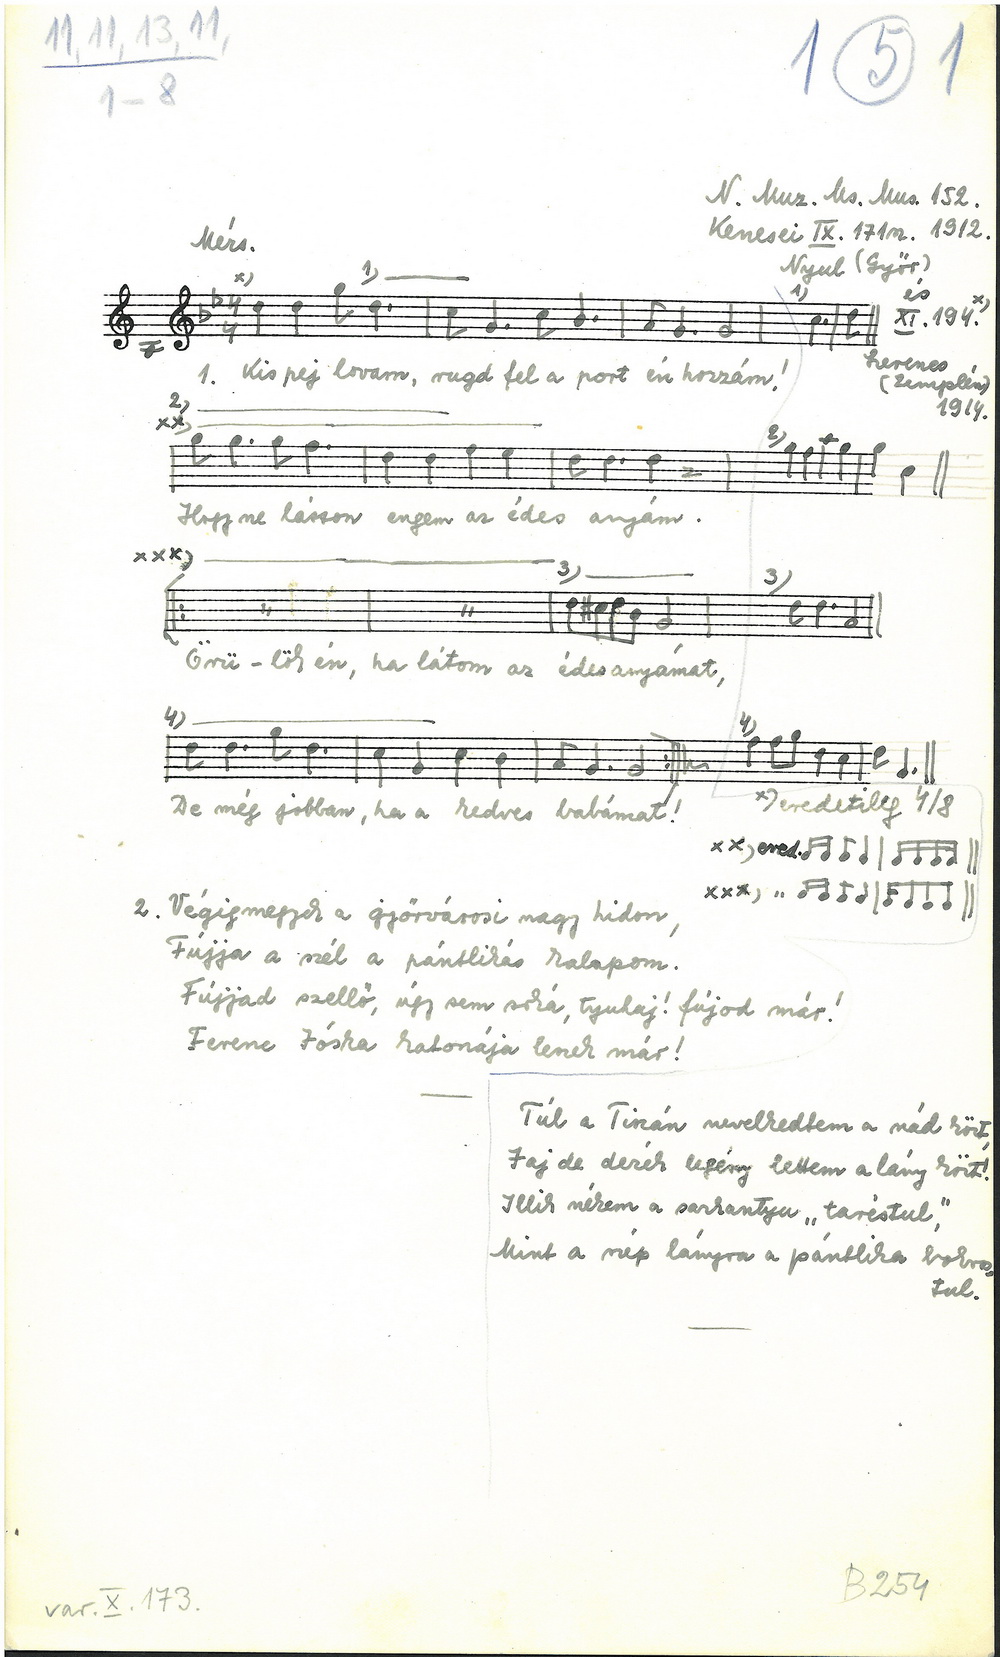 11, 11, 13, 11,
1 – 8
1 5 1
N. Muz. Ms. Mus. 152.
Kenesei IX. 171n. 1912.
Nyul (Győr)
és
XI. 194.x)
Szerencs
(Zemplén)
1914.
Mérs.
x) 1) 1)
4/4
1. Kis pej lovam, rugd fel a port én hozzám!
2)
xx) 2)
Hogy ne lásson engem az édes anyám.
xxx) 3) 3)
Örü – lök én, ha látom az édesanyámat,
4) 4)
De még jobban, ha a kedves babámat!
x) eredetileg 4/8
xx) ered.
xxx) "
2. Végigmegyek a győrvárosi nagy hidon,
Fújja a szél a pántlikás kalapom.
Fújjad szellő, úgy sem soká, tyuhaj! fújod már!
Ferenc Jóska katonája lenek már!
Túl a Tiszán nevelkedtem a nád közt,
Jaj de derék legény lettem a lány közt!
Illik nékem a sarkantyu „taréstul,"
Mint a szép lányra a pántlika bokros-
tul.
var. X. 173.
B 254